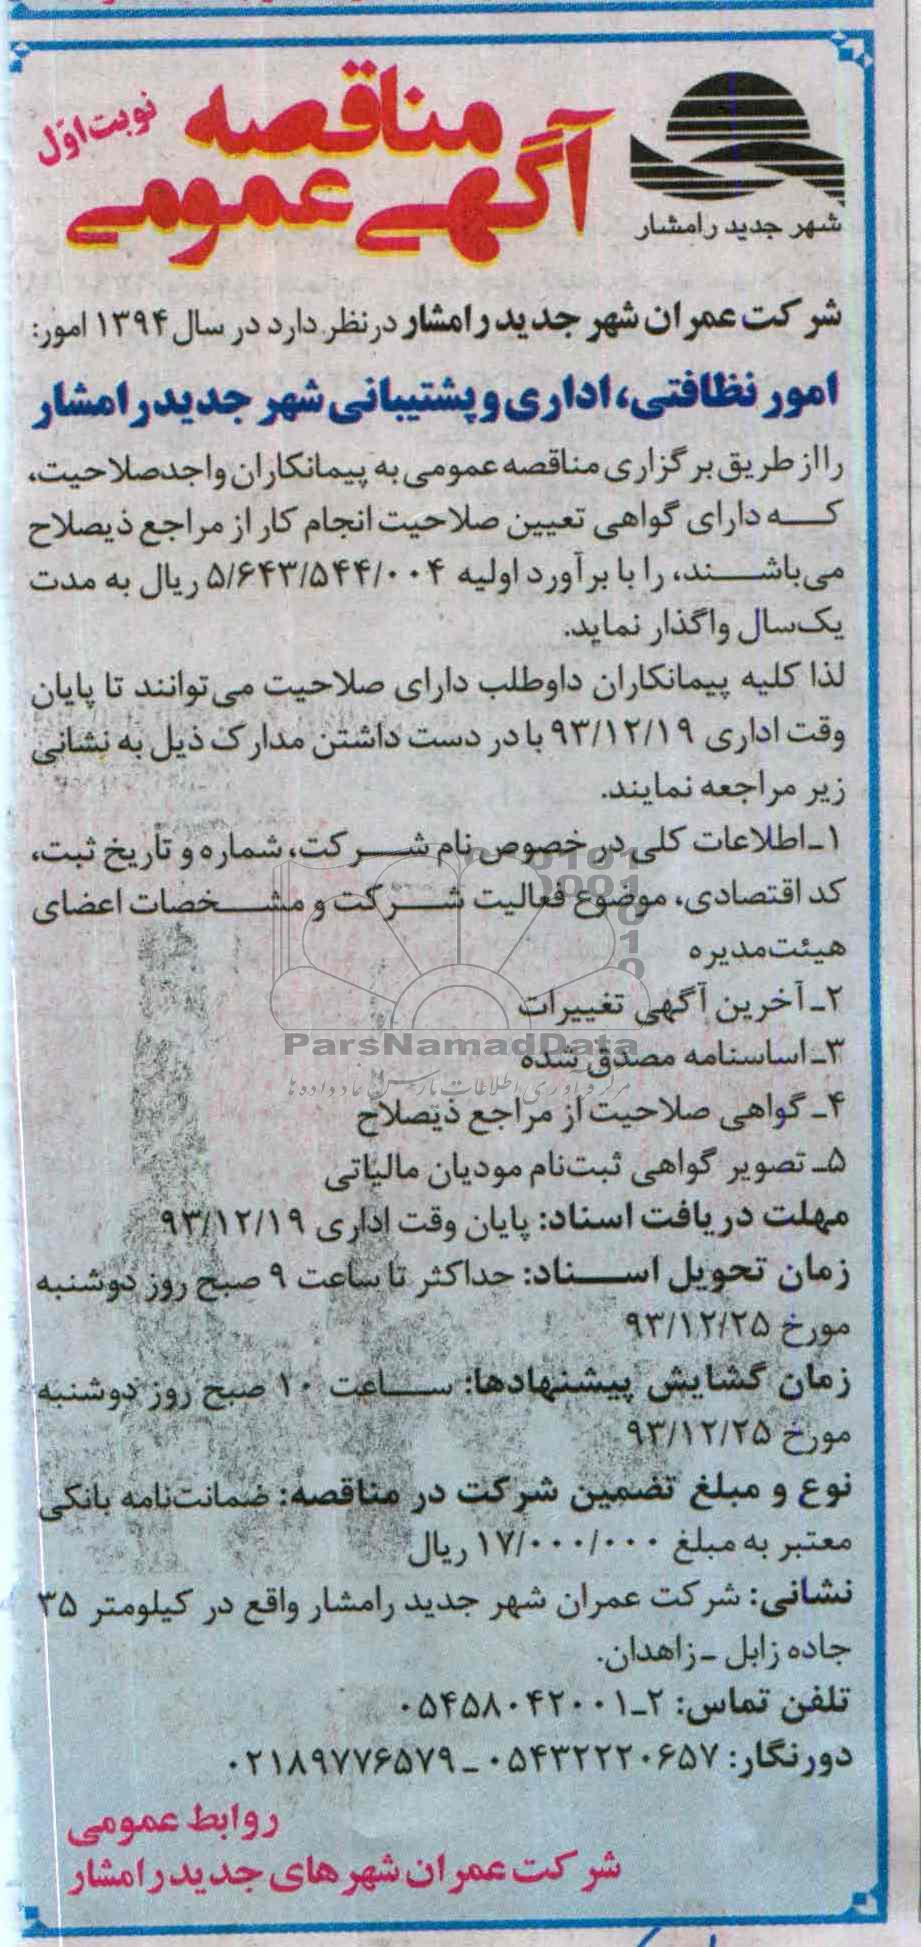 مناقصه
آگهی عمومی
نوبت اوّل
شهر جدید رامشار
شرکت عمران شهر جدید رامشار درنظر دارد در سال ۱۳۹۴ امور:
امور نظافتی، اداری و پشتیبانی شهر جدید رامشار
را از طریق برگزاری مناقصه عمومی به پیمانکاران واجدصلاحیت،
که دارای گواهی تعیین صلاحیت انجام کار از مراجع ذیصلاح
می‌باشند، را با برآورد اولیه ۵/۶۴۳/۵۴۴/۰۰۴ ریال به مدت
یک‌سال واگذار نماید.
لذا کلیه پیمانکاران داوطلب دارای صلاحیت می‌توانند تا پایان
وقت اداری ۹۳/۱۲/۱۹ با در دست داشتن مدارک ذیل به نشانی
زیر مراجعه نمایند.
۱ـ اطلاعات کلی در خصوص نام شرکت، شماره و تاریخ ثبت،
کد اقتصادی، موضوع فعالیت شرکت و مشخصات اعضای
هیئت‌مدیره
۲ـ آخرین آگهی تغییرات
۳ـ اساسنامه مصدق شده
۴ـ گواهی صلاحیت از مراجع ذیصلاح
۵ـ تصویر گواهی ثبت‌نام مودیان مالیاتی
مهلت دریافت اسناد: پایان وقت اداری ۹۳/۱۲/۱۹
زمان تحویل اسناد: حداکثر تا ساعت ۹ صبح روز دوشنبه
مورخ ۹۳/۱۲/۲۵
زمان گشایش پیشنهادها: ساعت ۱۰ صبح روز دوشنبه
مورخ ۹۳/۱۲/۲۵
نوع و مبلغ تضمین شرکت در مناقصه: ضمانت‌نامه بانکی
معتبر به مبلغ ۱۷/۰۰۰/۰۰۰ ریال
نشانی: شرکت عمران شهر جدید رامشار واقع در کیلومتر ۳۵
جاده زابل ـ زاهدان.
تلفن تماس: ۲ـ۰۵۴۵۸۰۴۲۰۰۱
دورنگار: ۰۵۴۳۲۲۲۰۶۵۷ ـ ۰۲۱۸۹۷۷۶۵۷۹
روابط عمومی
شرکت عمران شهرهای جدید رامشار
ParsNamadData